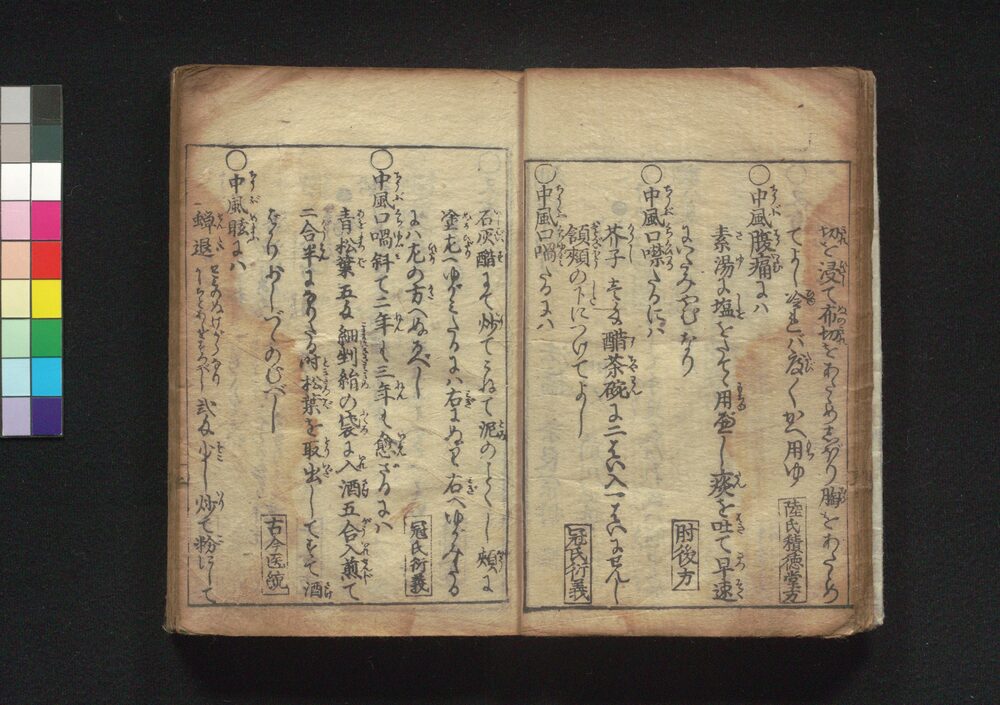 切を浸て布切をあたゝめしぼり胸をあたゝめ
てよし冷れバ度〻くかへ用ゆ
陸氏積徳堂方
〇中風腹痛にハ
素湯に塩をたてゝ用べし痰を吐て早速
にいたみやむなり
肘後方
〇中風口噤たるにハ
芥子 壱匁 醋茶碗に二はい入一はいにせんじ
頷頰の下につけてよし
冠氏衍義
〇中風口喎たるにハ
石灰醋にて炒てこねて泥のごとくし頰に
塗左へゆがみたるにハ右にぬり右へゆがみたる
にハ左の方へぬるべし
冠氏衍義
〇中風口喎斜て二年も三年も愈ざるにハ
青松葉 五匁 細剉絹の袋に入酒五合入煎て
二合半になりたる時松葉を取出してすて酒
ばかりおしづゝのむべし
古今医統
〇中風眩にハ
蝉退 せみのぬけがらなり 弐匁少し炒て粉にして